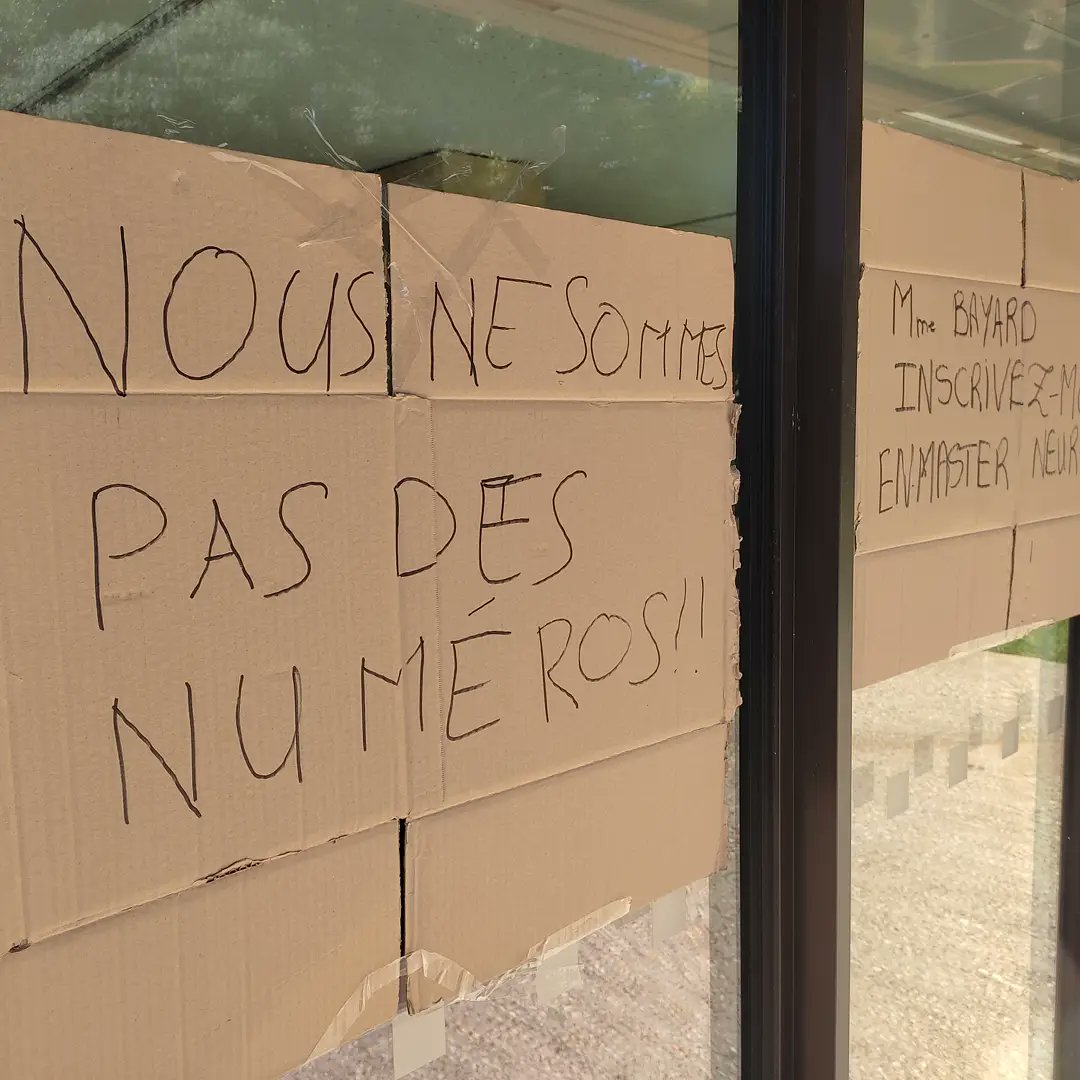 NOUS NE SOMMES
PAS DES
NUMÉROS!!
Mme BAYARD
INSCRIVEZ-M
EN MASTER NEUR